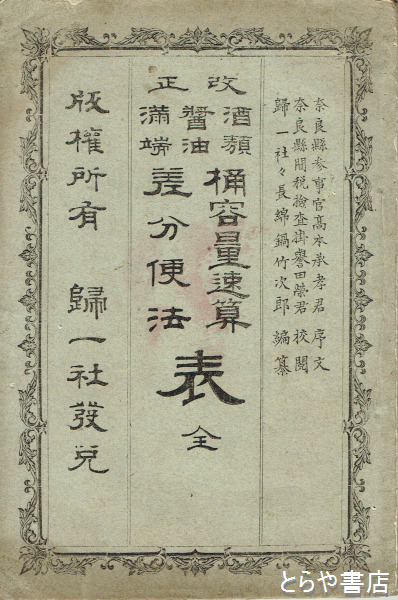 奈良縣参事官高本承孝君 序文
奈良縣間税檢査掛譽田榮君 校閲
歸一社々長綿鍋竹次郎 編纂
改正
酒類醤油桶容量速算
滿端差分便法
表 全
版權所有 歸一社發兌
とらや書店